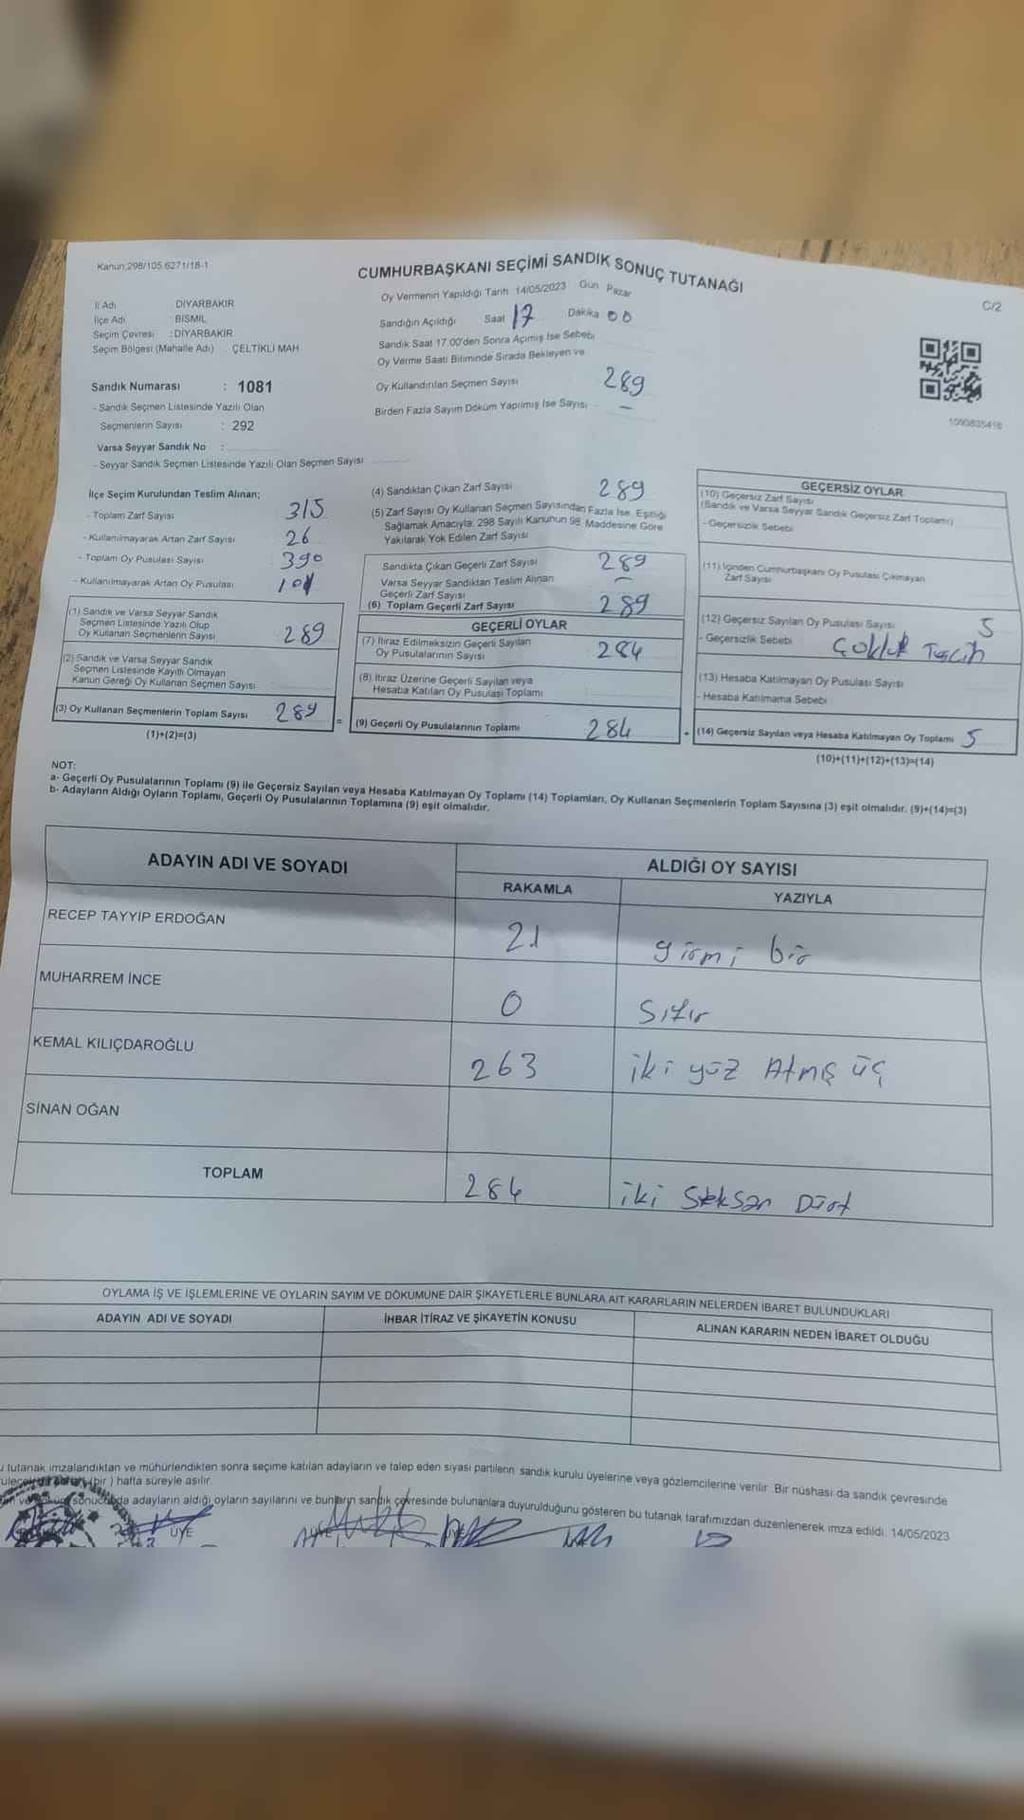 Kanun:298/105 6271/18-1
CUMHURBAŞKANI SEÇİMİ SANDIK SONUÇ TUTANAĞI
C/2
İl Adı DİYARBAKIR
İlçe Adı : BİSMİL
Seçim Çevresi : DİYARBAKIR
Seçim Bölgesi (Mahalle Adı) ÇELTİKLİ MAH
Sandık Numarası : 1081
- Sandık Seçmen Listesinde Yazılı Olan
Seçmenlerin Sayısı : 292
Varsa Seyyar Sandık No :
- Seyyar Sandık Seçmen Listesinde Yazılı Olan Seçmen Sayısı
Oy Vermenin Yapıldığı Tarih 14/05/2023 Gün Pazar
Sandığın Açıldığı Saat 17 Dakika 00
Sandık Saat 17.00'den Sonra Açımış İse Sebebi
Oy Verme Saati Bitiminde Sırada Bekleyen ve
Oy Kullandırılan Seçmen Sayısı 289
Birden Fazla Sayım Döküm Yapılmış İse Sayısı –
1090835416
İlçe Seçim Kurulundan Teslim Alınan;
- Toplam Zarf Sayısı 315
- Kullanılmayarak Artan Zarf Sayısı 26
- Toplam Oy Pusulası Sayısı 390
- Kullanılmayarak Artan Oy Pusulası 101
(1) Sandık ve Varsa Seyyar Sandık
Seçmen Listesinde Yazılı Olup
Oy Kullanan Seçmenlerin Sayısı 289
(2) Sandık ve Varsa Seyyar Sandık
Seçmen Listesinde Kayıtlı Olmayan
Kanun Gereği Oy Kullanan Seçmen Sayısı
(3) Oy Kullanan Seçmenlerin Toplam Sayısı 289 =
(1)+(2)=(3)
(4) Sandıktan Çıkan Zarf Sayısı 289
(5) Zarf Sayısı Oy Kullanan Seçmen Sayısından Fazla İse, Eşitliği
Sağlamak Amacıyla; 298 Sayılı Kanunun 98. Maddesine Göre
Yakılarak Yok Edilen Zarf Sayısı
Sandıkta Çıkan Geçerli Zarf Sayısı 289
Varsa Seyyar Sandıktan Teslim Alınan
Geçerli Zarf Sayısı –
(6) Toplam Geçerli Zarf Sayısı 289
GEÇERLİ OYLAR
(7) İtiraz Edilmeksizin Geçerli Sayılan
Oy Pusulalarının Sayısı 284
(8) İtiraz Üzerine Geçerli Sayılan veya
Hesaba Katılan Oy Pusulası Toplamı
(9) Geçerli Oy Pusulalarının Toplamı 284 +
GEÇERSİZ OYLAR
(10) Geçersiz Zarf Sayısı
(Sandık ve Varsa Seyyar Sandık Geçersiz Zarf Toplamı)
- Geçersizlik Sebebi
(11) İçinden Cumhurbaşkanı Oy Pusulası Çıkmayan
Zarf Sayısı
(12) Geçersiz Sayılan Oy Pusulası Sayısı 5
- Geçersizlik Sebebi Çokluk Tercih
(13) Hesaba Katılmayan Oy Pusulası Sayısı
- Hesaba Katılmama Sebebi
(14) Geçersiz Sayılan veya Hesaba Katılmayan Oy Toplamı 5
(10)+(11)+(12)+(13)=(14)
NOT:
a- Geçerli Oy Pusulalarının Toplamı (9) ile Geçersiz Sayılan veya Hesaba Katılmayan Oy Toplamı (14) Toplamları, Oy Kullanan Seçmenlerin Toplam Sayısına (3) eşit olmalıdır. (9)+(14)=(3)
b- Adayların Aldığı Oyların Toplamı, Geçerli Oy Pusulalarının Toplamına (9) eşit olmalıdır.
ADAYIN ADI VE SOYADI
ALDIĞI OY SAYISI
RAKAMLA YAZIYLA
RECEP TAYYİP ERDOĞAN 21 yirmi bir
MUHARREM İNCE 0 Sıfır
KEMAL KILIÇDAROĞLU 263 iki yüz Atmış üç
SİNAN OĞAN
TOPLAM 284 iki Seksen Dört
OYLAMA İŞ VE İŞLEMLERİNE VE OYLARIN SAYIM VE DÖKÜMÜNE DAİR ŞİKAYETLERLE BUNLARA AİT KARARLARIN NELERDEN İBARET BULUNDUKLARI
ADAYIN ADI VE SOYADI İHBAR İTİRAZ VE ŞİKAYETİN KONUSU ALINAN KARARIN NEDEN İBARET OLDUĞU
tutanak imzalandıktan ve mühürlendikten sonra seçime katılan adayların ve talep eden siyasi partilerin sandık kurulu üyelerine veya gözlemcilerine verilir. Bir nüshası da sandık çevresinde
(bir) hafta süreyle asılır.
sonucunda adayların aldığı oyların sayılarını ve bunların sandık çevresinde bulunanlara duyurulduğunu gösteren bu tutanak tarafımızdan düzenlenerek imza edildi. 14/05/2023
ÜYE